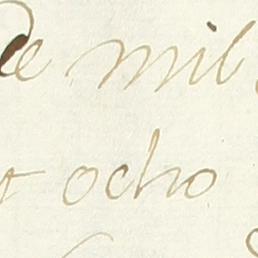 de mil
ocho